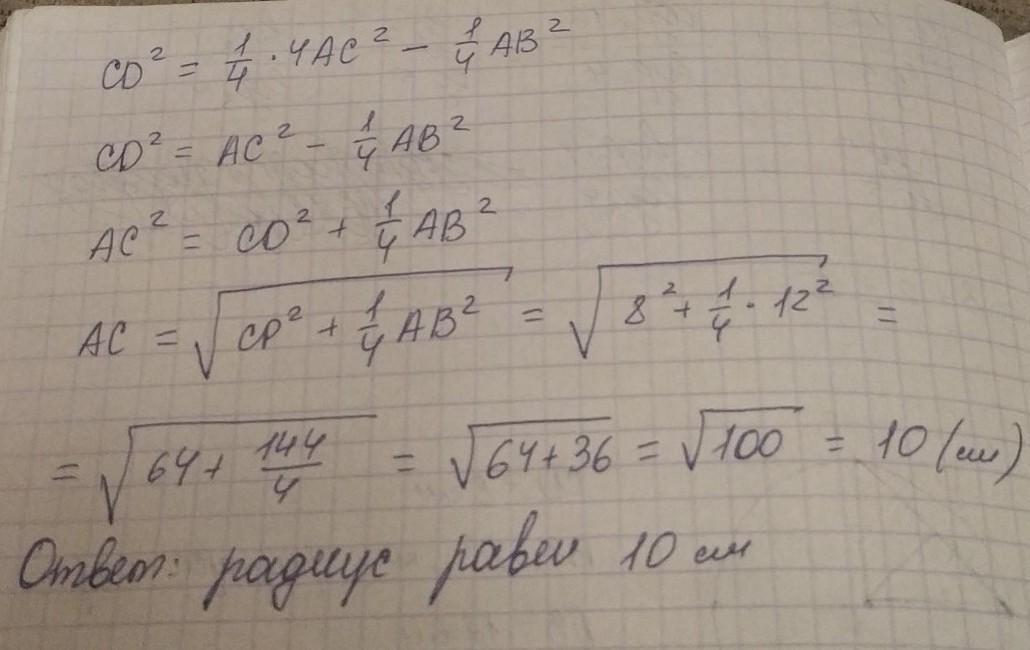 CD² = 1/4 · 4AC² - 1/4 AB²
CD² = AC² - 1/4 AB²
AC² = CD² + 1/4 AB²
AC = √(CD² + 1/4 AB²) = √(8² + 1/4 · 12²) =
= √(64 + 144/4) = √(64+36) = √100 = 10 (см)
Ответ: радиус равен 10 см